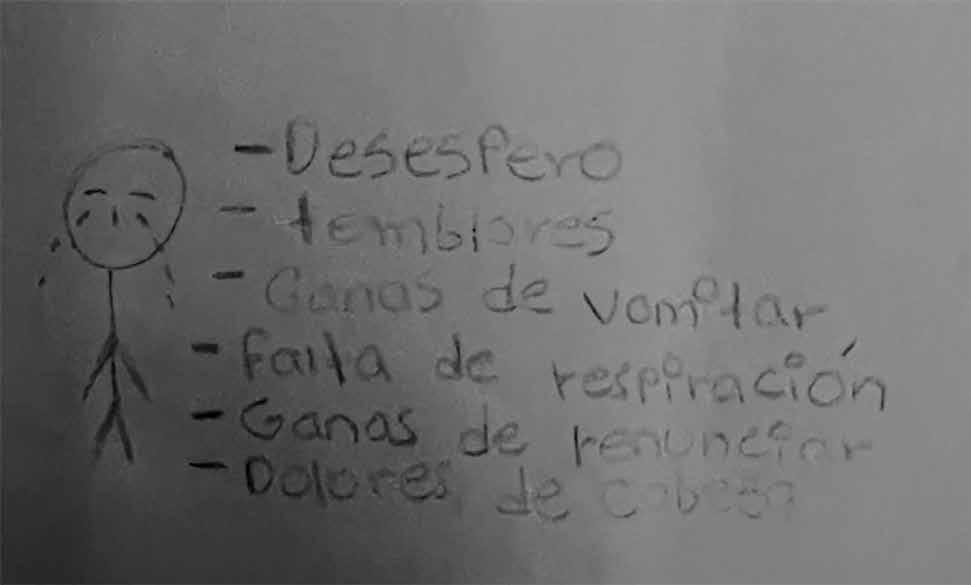 - Desespero
- temblores
- Ganas de vomitar
- Falta de respiración
- Ganas de renunciar
- Dolores de cabesa